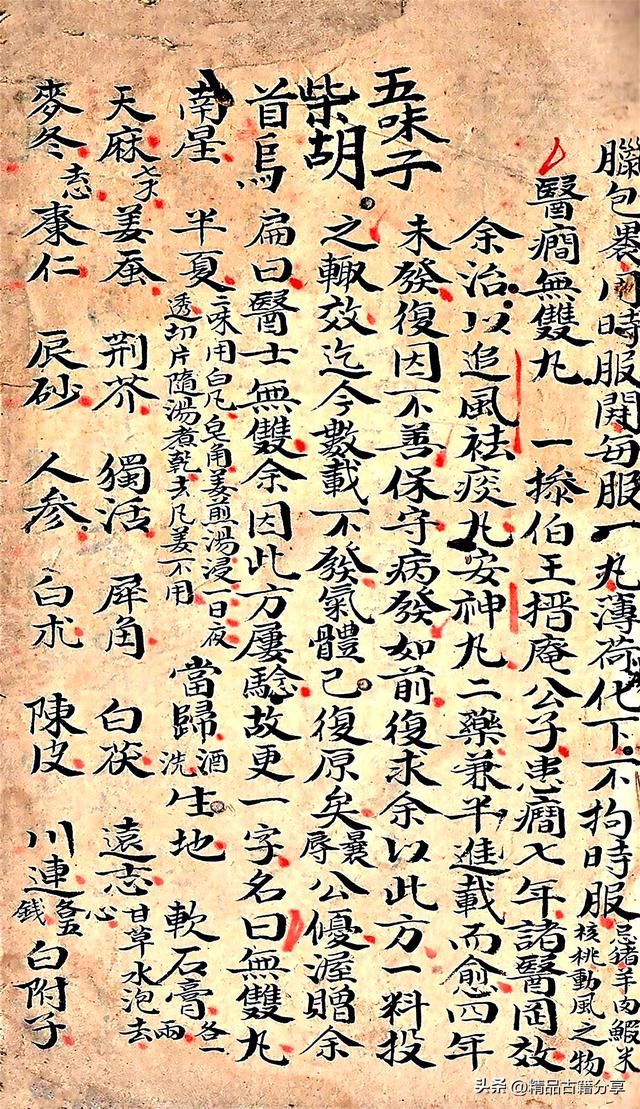 臘包裹用時服開每服一丸薄荷化下不拘時服忌猪羊肉鰕米核桃動風之物
醫癎無雙丸　一搽伯王搢庵公子患癎七年諸醫罔效
余治以追風祛痰丸安神丸二藥兼半進載而愈四年
五味子　未發復因不善保守病發如前復求余以此方一料投
柴胡　之輒效迄今數載不發氣體已復原矣曩辱公優渥贈余
首烏　扁曰醫士無雙余因此方屢驗故更一字名曰無雙丸
南星　半夏二味用白凡皂角姜煎湯浸一日夜透切片隨湯煮乾去凡姜不用　當歸酒洗　生地　軟石膏各一兩
天麻　姜蚕　荆芥　獨活　犀角　白茯　遠志甘草水泡去心
麥冬去心　棗仁　辰砂　人參　白朮　陳皮　川連各五錢　白附子
头条 @精品古籍分享